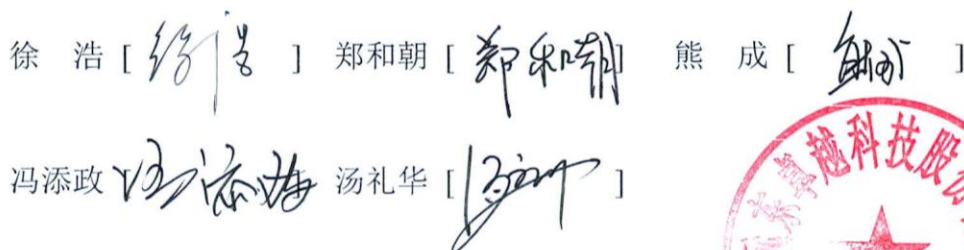 徐 浩 [ 徐浩 ] 郑和朝 [ 郑和朝 ] 熊 成 [ 熊成 ]
冯添政 冯添政 汤礼华 [ ]
卓越科技股份